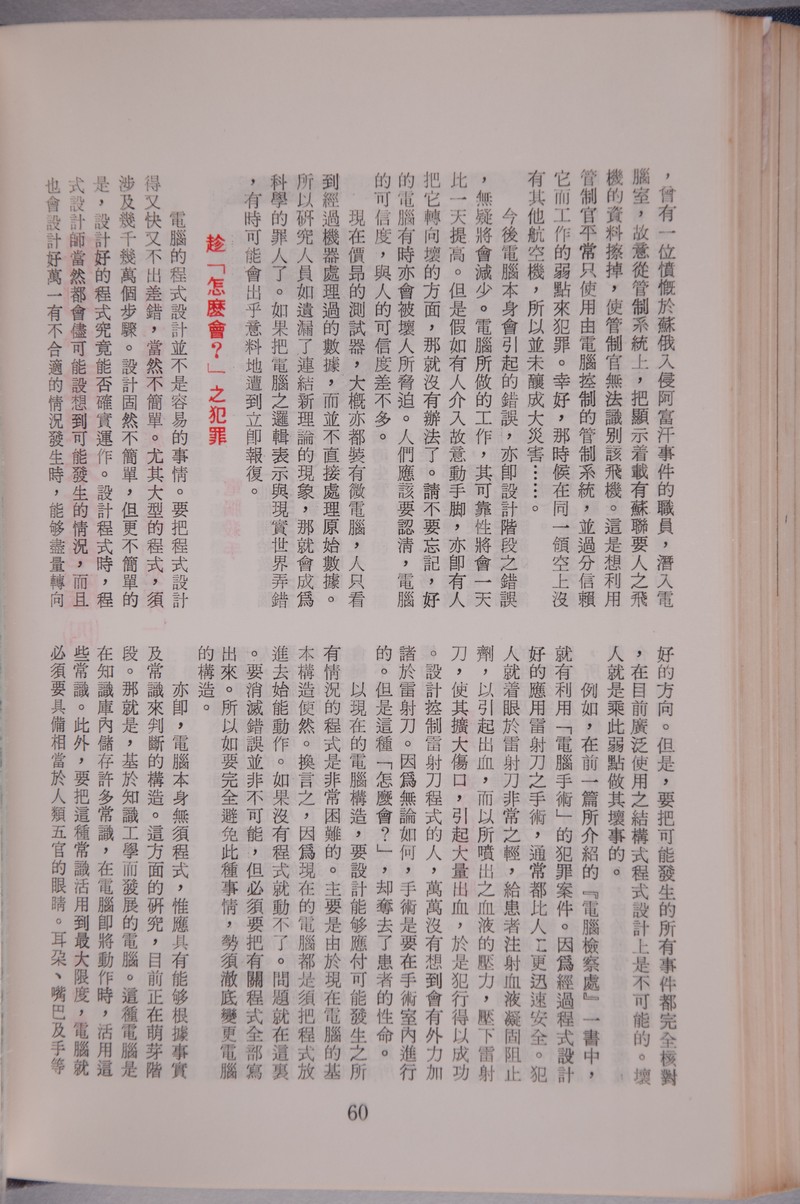 ，曾有一位憤慨於蘇俄入侵阿富汗事件的職員，潛入電
腦室，故意從管制系統上，把顯示着載有蘇聯要人之飛
機的資料擦掉，使管制官無法識別該飛機。這是想利用
管制官平常只使用由電腦控制的管制系統，並過分信賴
它而工作的弱點來犯罪。幸好，那時候在同一領空上沒
有其他航空機，所以並未釀成大災害……。
今後電腦本身會引起的錯誤，亦卽設計階段之錯誤
，無疑將會減少。電腦所做的工作，其可靠性將會一天
比一天提高。但是假如有人介入故意動手脚，亦卽有人
把它轉向壞的方面，那就沒有辦法了。請不要忘記，好
的電腦有時亦會被壞人所脅迫。人們應該要認淸，電腦
的可信度，與人的可信度差不多。
現在價昂的測試器，大槪亦都裝有微電腦，人只看
到經過機器處理過的數據，而並不直接處理原始數據。
所以硏究人員如遺漏了連結新理論的現象，那就會成爲
科學的罪人了。如果把電腦之邏輯表示與現實世界弄錯
，有時可能會出乎意料地遭到立卽報復。
趁「怎麼會？」之犯罪
電腦的程式設計並不是容易的事情。要把程式設計
得又快又不出差錯，當然不簡單。尤其大型的程式，須
涉及幾千幾萬個步驟。設計固然不簡單，但更不簡單的
是，設計好的程式究竟能否確實運作。設計程式時，程
式設計師當然都會儘可能設想到可能發生的情況，而且
也會設計好萬一有不合適的情況發生時，能够盡量轉向
好的方向。但是，要把可能發生的所有事件都完全核對
，在目前廣泛使用之結構式程式設計上是不可能的。壞
人就是乘此弱點做其壞事的。
例如，在前一篇所介紹的『電腦檢察處』一書中，
就有利用「電腦手術」的犯罪案件。因爲經過程式設計
好的應用雷射刀之手術，通常都比人工更迅速安全。犯
人就着眼於雷射刀非常之輕，給患者注射血液凝固阻止
劑，以引起出血，而以所噴出之血液的壓力，壓下雷射
刀，使其擴大傷口，引起大量出血，於是犯行得以成功
。設計控制雷射刀程式的人，萬萬沒有想到會有外力加
諸於雷射刀。因爲無論如何，手術是要在手術室內進行
的。但是這種「怎麼會？」，却奪去了患者的性命。
以現在的電腦構造，要設計能够應付可能發生之所
有情況的程式是非常困難的。主要是由於現在電腦的基
本構造使然。換言之，因爲現在的電腦都是須把程式放
進去始能動作。如果沒有程式就動不了。問題就在這裏
。要消滅錯誤並非不可能，但必須要把有關程式全部寫
出來。所以如要完全避免此種事情，勢須澈底變更電腦
的構造。
亦卽，電腦本身無須程式，惟應具有能够根據事實
及常識來判斷的構造。這方面的硏究，目前正在萌芽階
段。那就是，基於知識工學而發展的電腦。這種電腦是
在知識庫內儲存許多常識，在電腦卽將動作時，活用這
些常識。此外，要把這種常識活用到最大限度，電腦就
必須要具備相當於人類五官的眼睛。耳朶、嘴巴及手等
60